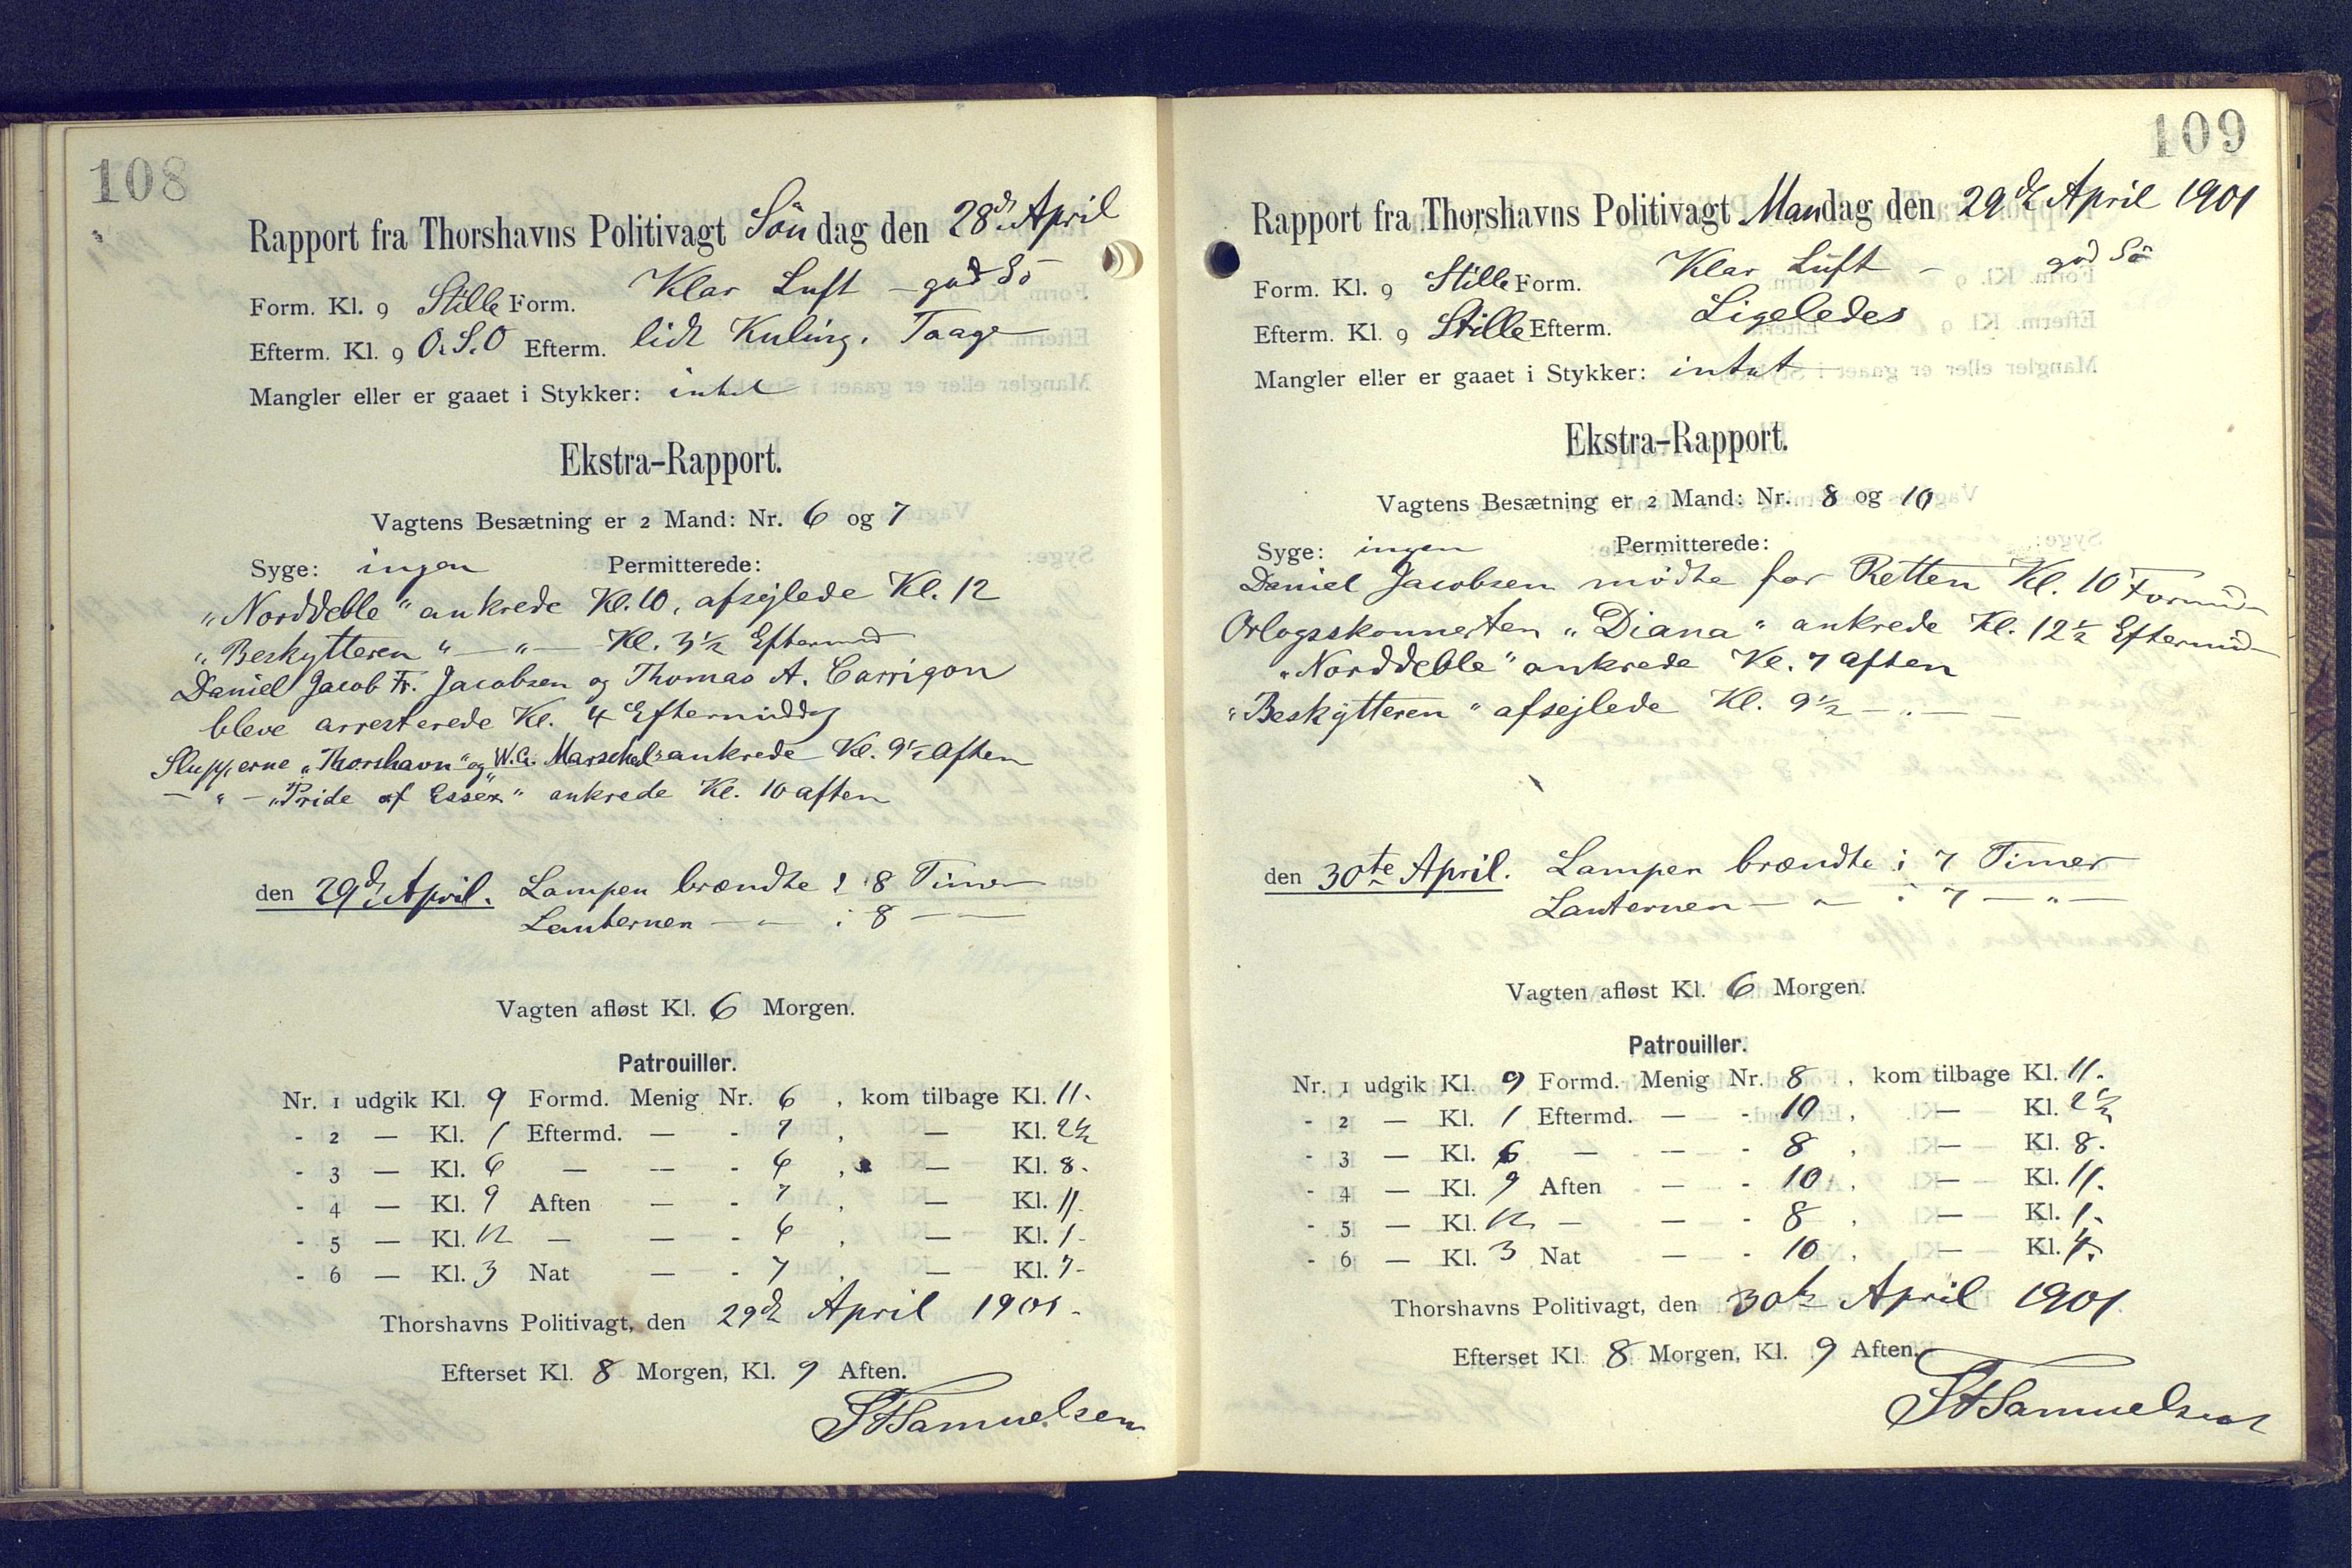 108
Rapport fra Thorshavns Politivagt Søndag den 28de April
Form. Kl. 9 Stille Form. Klar Luft – god Sö
Efterm. Kl. 9 O.S.O Efterm. lidt Kuling. Taage
Mangler eller er gaaet i Stykker: intet
Ekstra-Rapport.
Vagtens Besætning er 2 Mand: Nr. 6 og 7
Syge: ingen Permitterede:
„Norddeble“ ankrede Kl. 10, afsejlede Kl. 12
„Beskytteren“ — „ — Kl. 3½ Eftermid
Daniel Jacob Fr. Jacobsen og Thomas A. Carrigon
bleve arresterede Kl. 4 Eftermiddg
Slupperne „Thorshavn“ og W.G. Marschel ankrede Kl. 9½ Aften
— „ — „Pride af Essex“ ankrede Kl. 10 aften
den 29de April. Lampen brændte i 8 Timer
Lanternen — „ — i 8 — —
Vagten afløst Kl. 6 Morgen.
Patrouiller.
Nr. 1 udgik Kl. 9 Formd. Menig Nr. 6, kom tilbage Kl. 11.
- 2 — Kl. 1 Eftermd. — - 7, — Kl. 2½
- 3 — Kl. 6 — — - 6, — Kl. 8.
- 4 — Kl. 9 Aften — - 7, — Kl. 11.
- 5 — Kl. 12 — — - 6, — Kl. 1-
- 6 — Kl. 3 Nat — - 7, — Kl.
Thorshavns Politivagt, den 29de April 1901.
Efterset Kl. 8 Morgen, Kl. 9 Aften.
Samuelsen
109
Rapport fra Thorshavns Politivagt Mandag den 29de April 1901
Form. Kl. 9 Stille Form. Klar Luft – god Sö
Efterm. Kl. 9 Stille Efterm. Ligeledes
Mangler eller er gaaet i Stykker: intet
Ekstra-Rapport.
Vagtens Besætning er 2 Mand: Nr. 8 og 10
Syge: ingen Permitterede:
Daniel Jacobsen mødte for Retten Kl. 10 Formid
Orlogsskonnerten „Diana“ ankrede Kl. 12½ Eftermid
„Norddeble“ ankrede Kl. 7 aften
„Beskytteren“ afsejlede Kl. 9½ — „ —
den 30te April. Lampen brændte i 7 Timer
Lanternen — „ — i 7 — „ —
Vagten afløst Kl. 6 Morgen.
Patrouiller.
Nr. 1 udgik Kl. 9 Formd. Menig Nr. 8, kom tilbage Kl. 11.
- 2 — Kl. 1 Eftermd. — - 10, — Kl. 2½
- 3 — Kl. 6 — — - 8, — Kl. 8.
- 4 — Kl. 9 Aften — - 10, — Kl. 11.
- 5 — Kl. 12 — — - 8, — Kl. 1.
- 6 — Kl. 3 Nat — - 10, — Kl. 4.
Thorshavns Politivagt, den 30te April 1901
Efterset Kl. 8 Morgen, Kl. 9 Aften.
Samuelsen